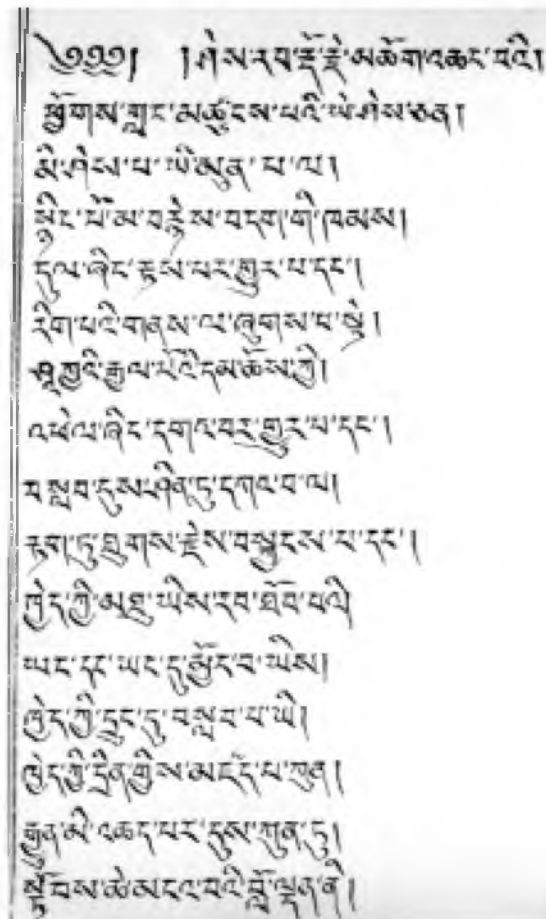 ༄༅༅། །ཤེས་རབ་རྡོ་རྗེ་མཆོག་འཆང་བའི།
ཕྱོགས་གླང་མཚུངས་པའི་ཡེ་ཤེས་ཅན།
མི་ཤེས་པ་ཡི་མུན་པ་ལ།
སྙིང་པོ་མ་བརྙེས་བདག་གི་ཁམས།
དུལ་ཞིང་རྟས་པར་གྱུར་པ་དང་།
རིག་པའི་གནས་ལ་ཞུགས་པ་སྟེ།
ཤཱཀྱའི་རྒྱལ་པོའི་དམ་ཆོས་ཀྱི།
འཕེལ་ཞིང་དགའ་བར་གྱུར་པ་དང་།
བསླབ་དུས་ཤིན་ཏུ་དགའ་བ་ལ།
རྟག་ཏུ་ཐུགས་རྗེས་བསྐྱངས་པ་དང་།
ཁྱེད་ཀྱི་མཐུ་ཡིས་རབ་ཐོབ་པའི
ཡང་དང་ཡང་དུ་མྱོང་བ་ཡིས།
ཁྱེད་ཀྱི་དྲུང་དུ་བསླབ་པ་ཡི།
ཁྱེད་ཀྱི་དྲིན་གྱིས་མངོན་པ་ཀུན།
རྒྱུན་མི་འཆད་པར་དུས་ཀུན་ཏུ།
སྟོབས་ཆེ་མངའ་བའི་བློ་ལྡན་ནི།